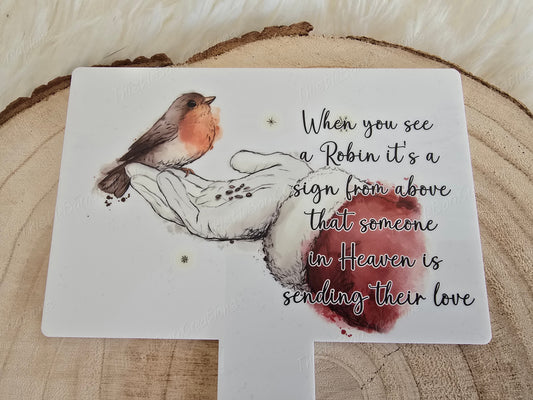 When you see
a Robin it's a
sign from above
that someone
in Heaven is
sending their love